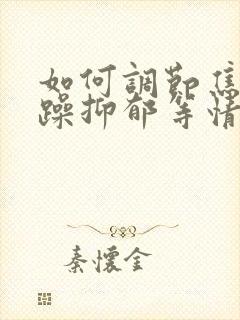 如何調節焦
躁抑郁等情
秦懷金